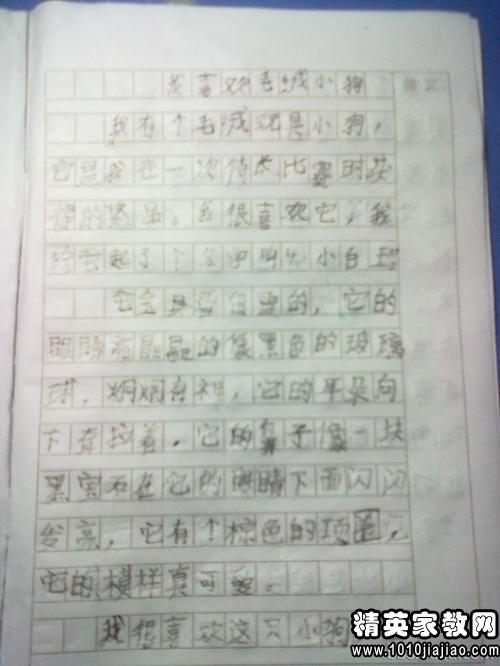 我喜欢毛绒小狗
我有个毛绒玩具小狗，
它是我在一次特长比赛时获
得的奖品。我很喜欢它，我
给它起了个名字叫 小白
它全身雪白雪白的，它的
眼睛亮晶晶的像黑色的玻璃
球，炯炯有神，它的耳朵向
下耷拉着，它的鼻子像一块
黑宝石在它的眼睛下面闪闪
发亮，它有个棕色的项圈，
它的模样真可爱。
我很喜欢这只小狗
精英家教网
www.1010jiajiao.com